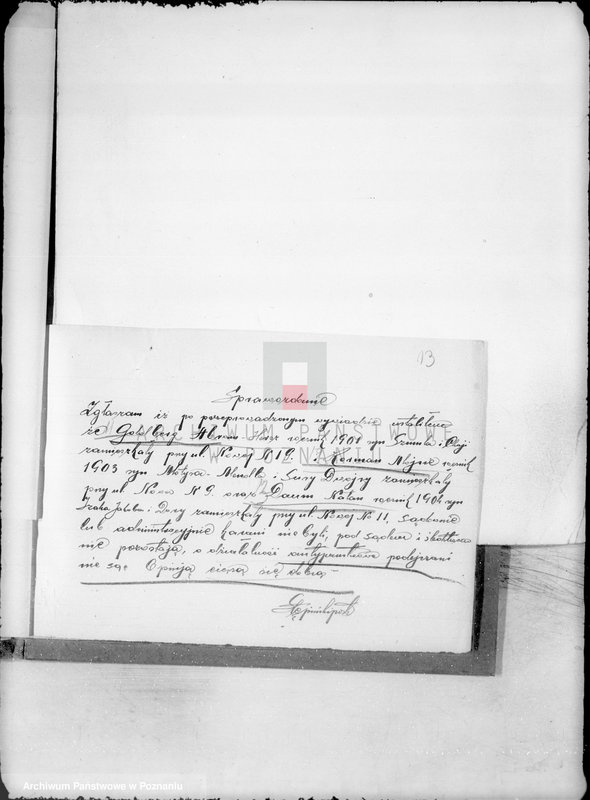 13
Sprawozdanie
Zgłaszam iż po przeprowadzonym wywiadzie ustaliłem
że Goldberg Abram rocznik 1901 syn Szmula i
zamieszkały przy ul. Nowej N 19. Rocman rocznik
1903 syn Motysa-Mendla i Sury Dwojry zamieszkały
przy ul. Nowa N 9. oraz Daum Natan rocznik 1901 syn
Icaka Jakuba i Dwojry zamieszkały przy ul Nowej No 11, sądownie
lub administracyjnie karani nie byli, pod sądem i śledztwem
nie pozostają, o działalność antypaństwową podejrzani
nie są. Opinją cieszą się dobrą
ARCHIWUM PAŃSTWOWE
W POZNANIU
Archiwum Państwowe w Poznaniu